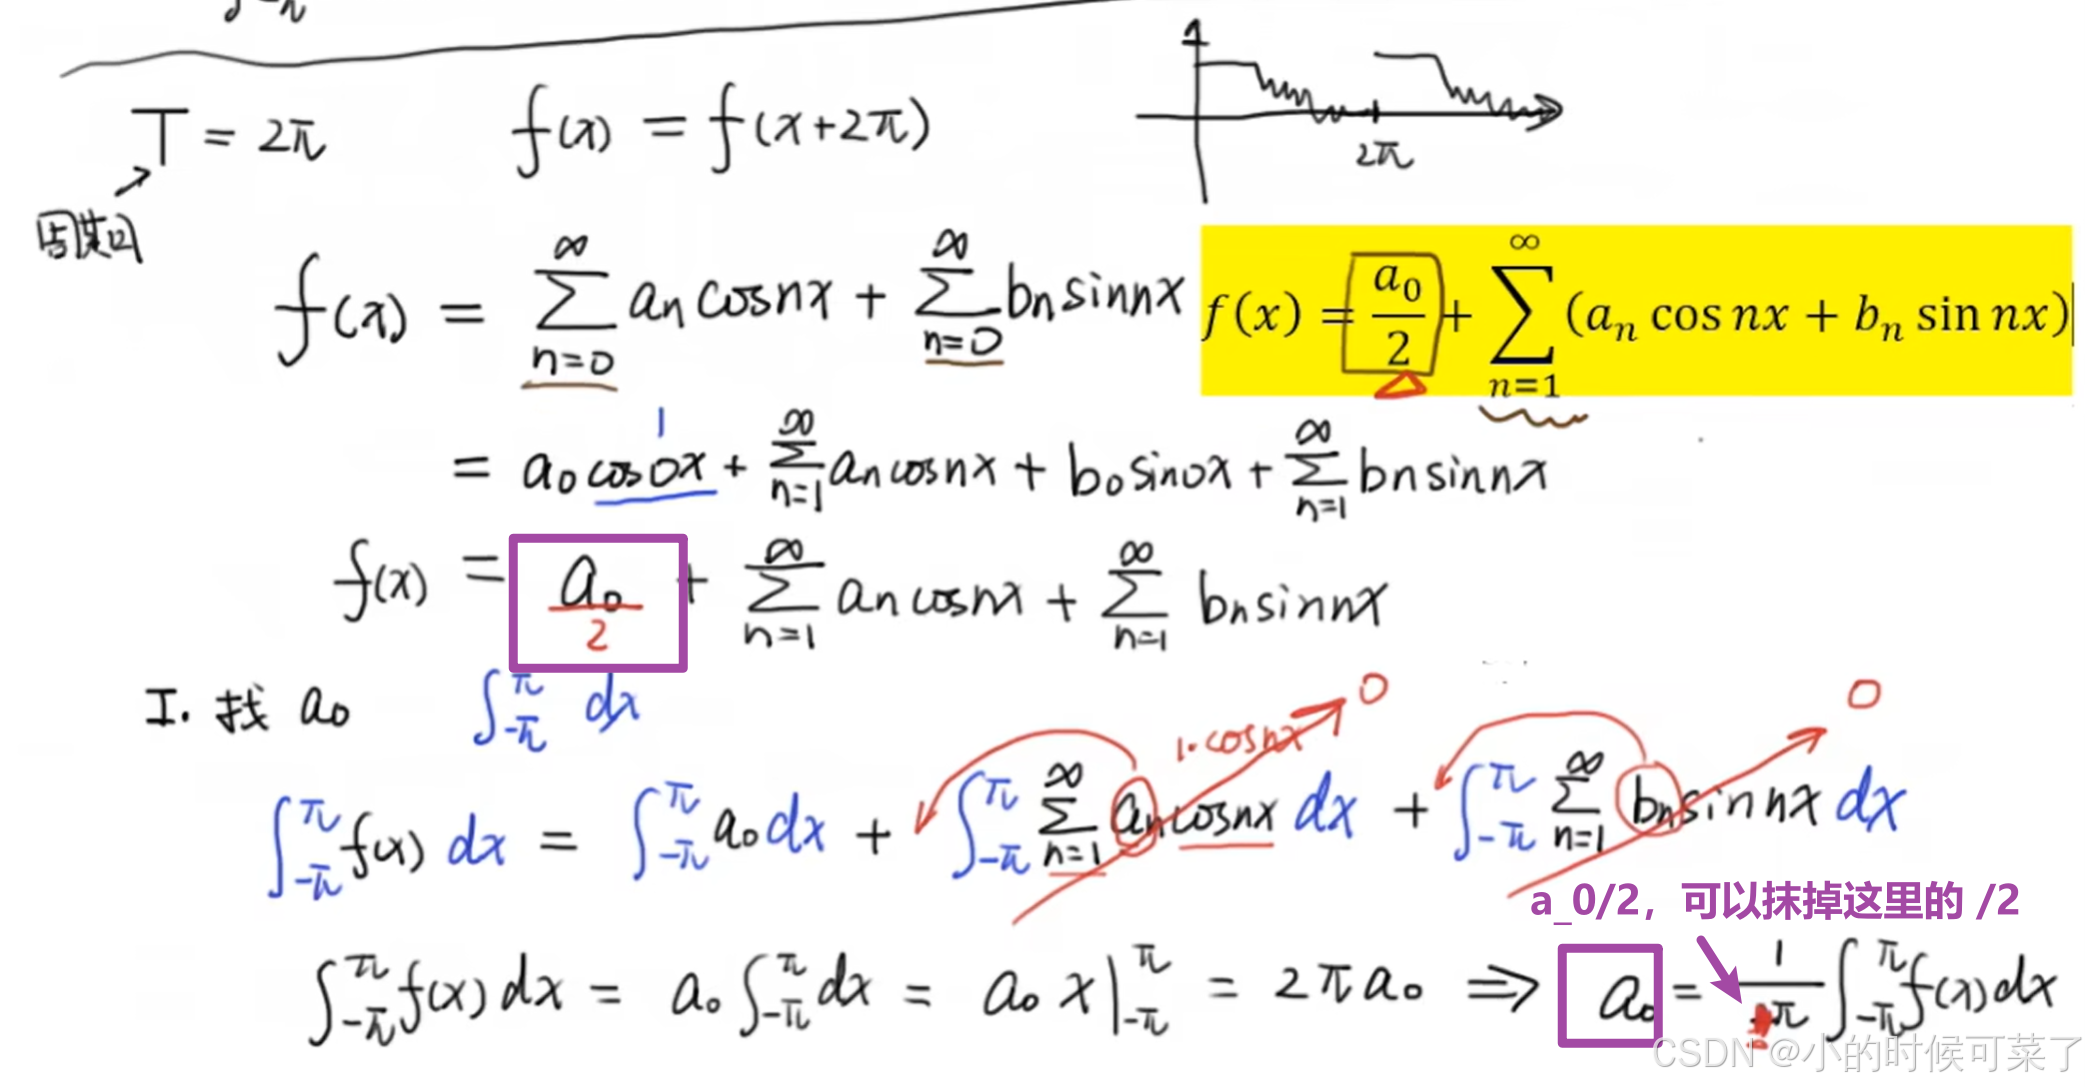 T = 2π f(x) = f(x+2π) 1 2π
周期
f(x) = ∑_{n=0}^{∞} a_n cos nx + ∑_{n=0}^{∞} b_n sin nx f(x) = a_0/2 + ∑_{n=1}^{∞} (a_n cos nx + b_n sin nx)
= a_0 cos 0x + ∑_{n=1}^{∞} a_n cos nx + b_0 sin 0x + ∑_{n=1}^{∞} b_n sin nx
1
f(x) = a_0/2 + ∑_{n=1}^{∞} a_n cos nx + ∑_{n=1}^{∞} b_n sin nx
I. 找 a_0 ∫_{-π}^{π} dx
1·cos nx 0 0
∫_{-π}^{π} f(x) dx = ∫_{-π}^{π} a_0 dx + ∫_{-π}^{π} ∑_{n=1}^{∞} a_n cos nx dx + ∫_{-π}^{π} ∑_{n=1}^{∞} b_n sin nx dx
a_0/2，可以抹掉这里的 /2
∫_{-π}^{π} f(x) dx = a_0 ∫_{-π}^{π} dx = a_0 x|_{-π}^{π} = 2π a_0 ⇒ a_0 = 1/π ∫_{-π}^{π} f(x) dx
CSDN @小的时候可菜了